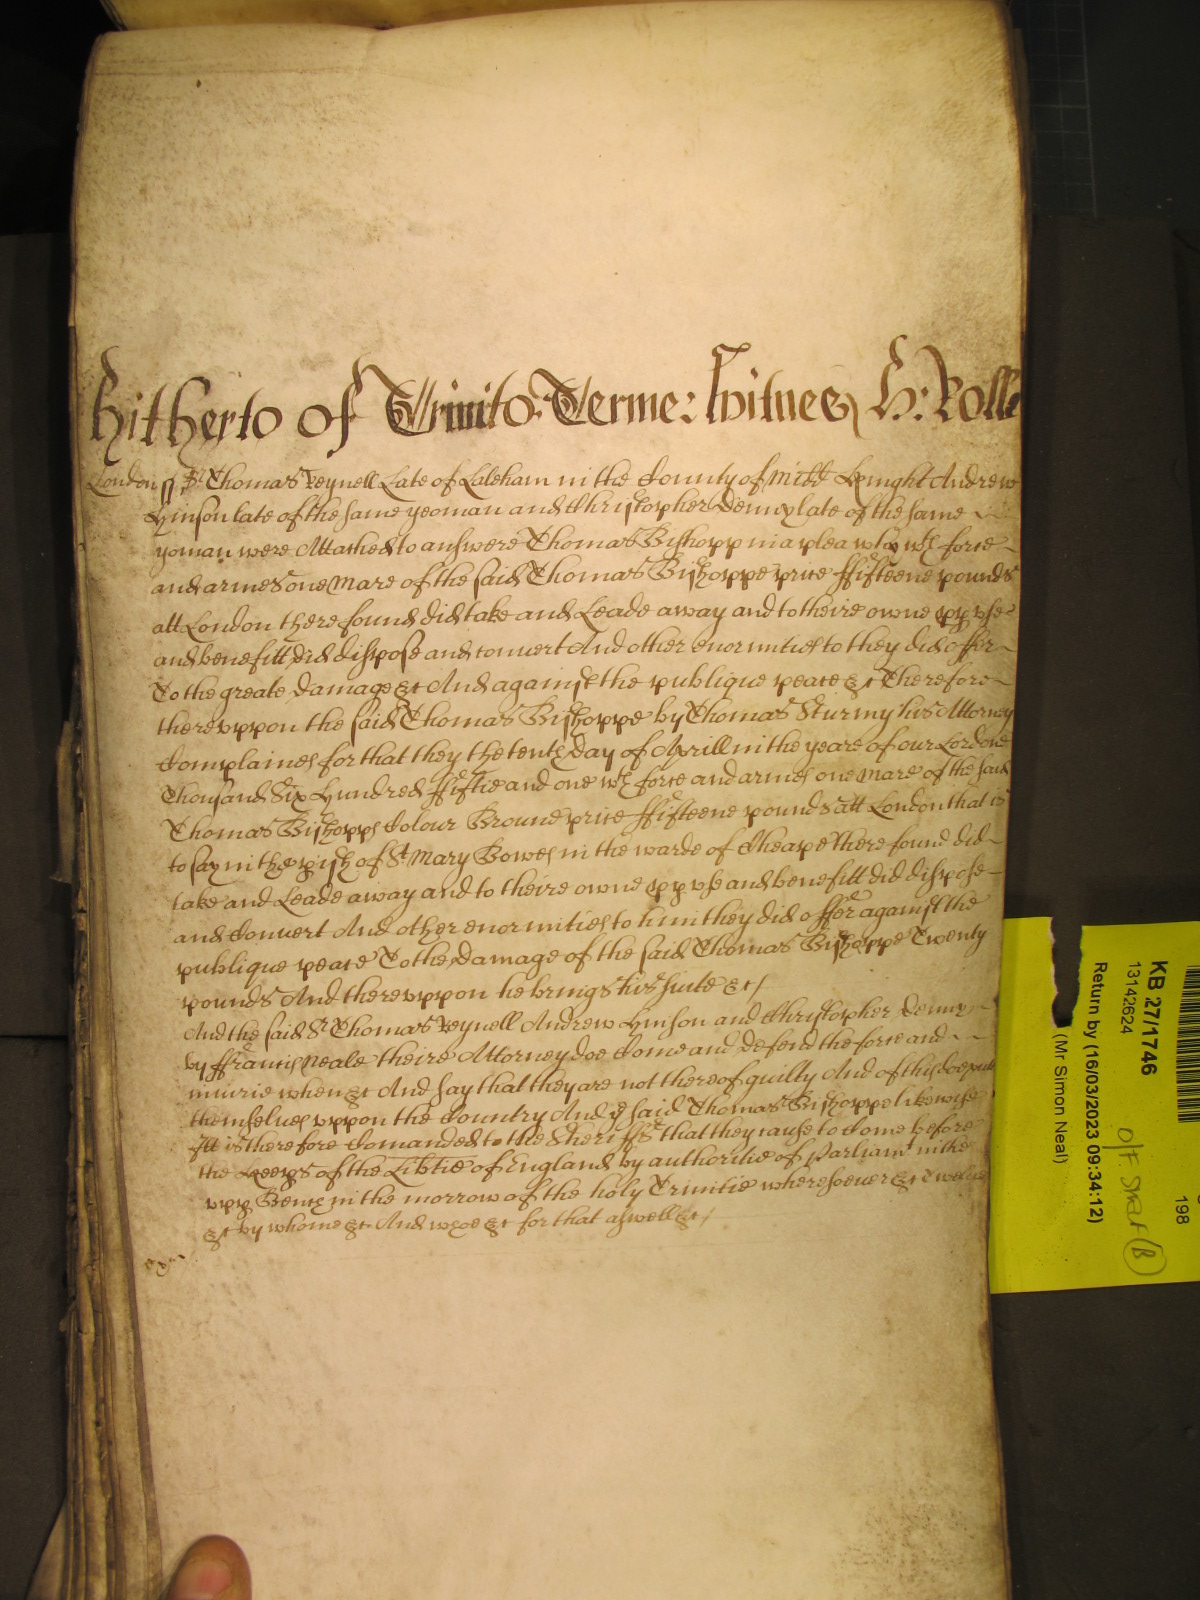 hitherto of Trinito: Terme: Witnes H: Rolle
London ss Sr Thomas Reynell Late of Laleham in the County of Midd Knight Andrew
Hinson late of the same yeoman and Christopher Denny late of the same
yoman were Attached to answere Thomas Bishopp in a plea why wth force
and armes one mare of the said Thomas Bishoppe price ffifteene pounds
att London there found did take and Leade away and to theire owne pp vse
and benefitt did dispose and convert And other enormities to they did offer
To the greate damage &c And against the publique peace &c Therefore
therevppon the said Thomas Bishoppe by Thomas Sturmy his Attorney
Complaines for that they the tenth day of Aprill in the yeare of our Lord one
Thousand Six Hundred ffiftie and one wth force and armes one mare of the said
Thomas Bishopps Colour Browne price ffifteene pounds att London that is
to say in the pish of St Mary Bowes in the warde of Cheape there found did
take and Leade away and to theire owne pp vse and benefitt did dispose
and Convert And other enormities to him they did offer against the
publique peace To the damage of the said Thomas Bishoppe Twenty
pounds And therevppon he brings his suite &c/
And the said Sr Thomas Reynell Andrew Hinson and Christopher Denny
by ffrancis Neale theire Attorney doe Come and defend the force and
iniurie when &c And say that they are not thereof guilty And of this doe putt
themselues vppon the Country And ye said Thomas Bishoppe likewise
It is therefore Comanded to the Sheriffs that they cause to Come before
the Keeps of the Libtie of England by authoritie of Parliamt in the
vpp Bench in the morrow of the holy Trinitie wheresoever &c Twelve
&c by whome &c And whoe &c for that aswell &c/
KB 27/1746
13142624
Return by (16/03/2023 09:34:12)
(Mr Simon Neal)
198